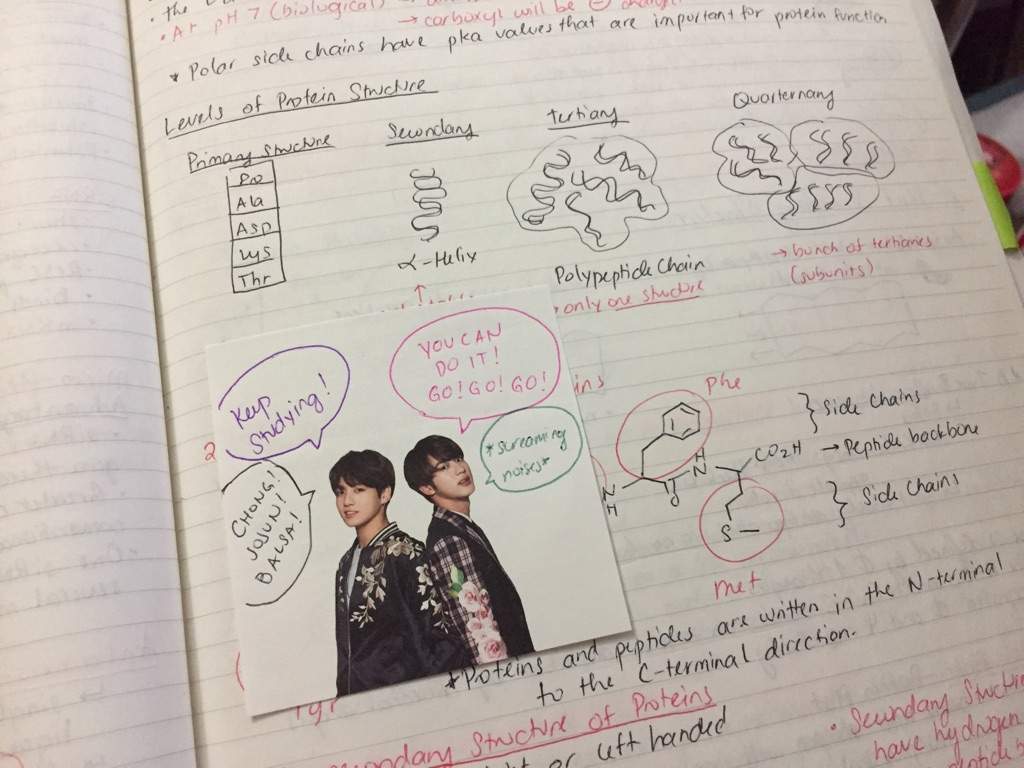 • the
• At pH 7 (biological)
→ carboxyl will be ⊖
* Polar side chains have pka values that are important for protein function
Levels of Protein Structure
Primary structure
Secondary
tertiary
Quarternary
Pro
Ala
Asp
Lys
Thr
α-Helix
Polypeptide Chain
• only one structure
→ bunch of tertiaries
(subunits)
Keep
Studying!
YOU CAN
DO IT!
GO! GO! GO!
*screaming
noises*
CHONG!!
JOJUN!
BALSA!
2
ins
Phe
} Side Chains
CO2H → Peptide backbone
} Side Chains
N
H
O
H
N
S
Met
* Proteins and peptides are written in the N-terminal
to the C-terminal direction.
Tyr
Secondary Structure of Proteins
or left handed
• Secondary Structure
have hydrogen